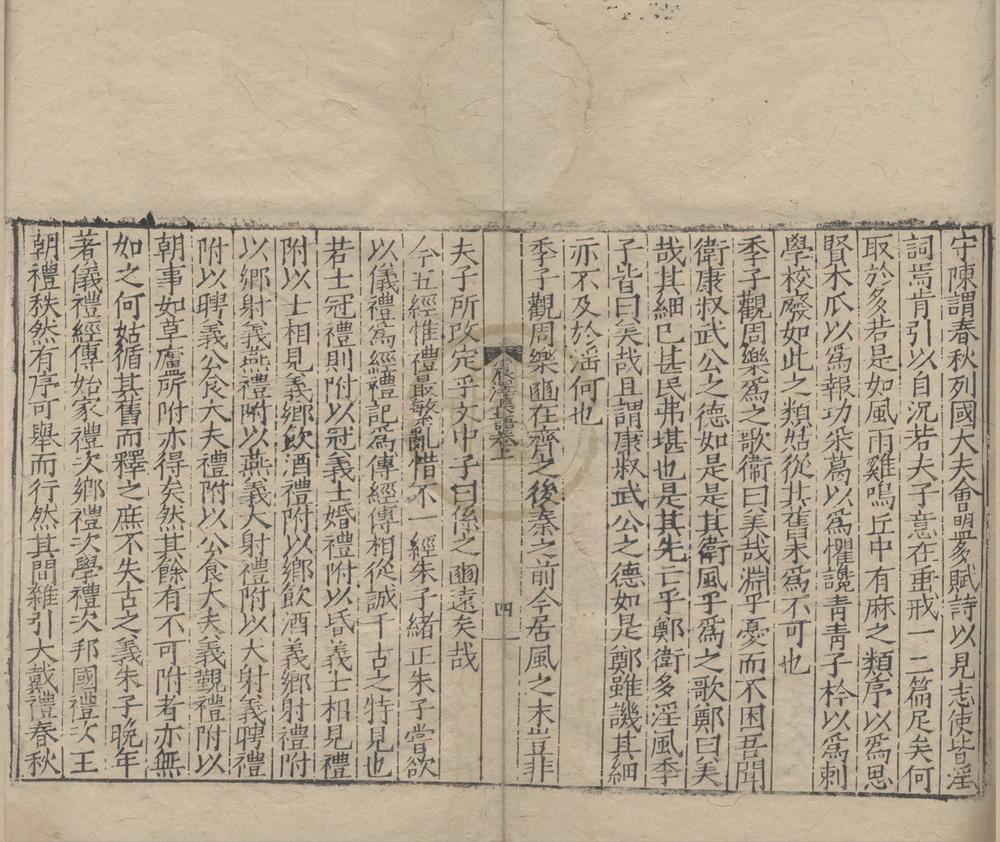 守陳謂春秋列國大夫會盟多賦詩以見志使皆淫
詞焉肯引以自況若夫子意在垂戒一二篇足矣何
取於多若是如風雨雞鳴丘中有麻之類序以為思
賢木瓜以為報功采葛以為懼讒青青子衿以為刺
學校廢如此之類姑從其舊未為不可也
季子觀周樂為之歌衞曰美哉淵乎憂而不困吾聞
衛康叔武公之德如是是其衛風乎為之歌鄭曰美
哉其細已甚民弗堪也是其先亡乎鄭衛多淫風季
子皆曰美哉且謂康叔武公之德如是鄭雖譏其細
亦不及於淫何也
季子觀周樂豳在齊之後秦之前今居風之末豈非
四
夫子所改定乎文中子曰係之豳遠矣哉
今五經惟禮最繁亂惜不一經朱子緒正朱子嘗欲
以儀禮為經禮記為傳經傳相從誠千古之特見也
若士冠禮則附以冠義士婚禮附以昏義士相見禮
附以士相見義鄉飲酒禮附以鄉飲酒義鄉射禮附
以鄉射義燕禮附以燕義大射禮附以大射義聘禮
附以聘義公食大夫禮附以公食大夫義覲禮附以
朝事如草廬所附亦得矣然其餘有不可附者亦無
如之何姑循其舊而釋之庶不失古之義朱子晚年
著儀禮經傳始家禮次鄉禮次學禮次邦國禮次王
朝禮秩然有序可舉而行然其間雜引大戴禮春秋